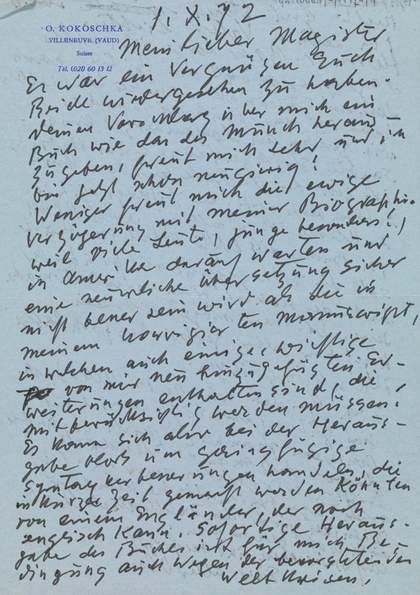 O. KOKOSCHKA
VILLENEUVE (VAUD)
Suisse
Tél. (021) 60 13 12
1. X. 72
Mein lieber Magister
Es war ein Vergnügen Euch
Beide wiedergesehen zu haben.
Deinen Vorschlag über mich ein
Buch wie das des Munch heraus-
zugeben, freut mich sehr und ich
bin jetzt schon neugierig!
Weniger freut mich die ewige
Verzögerung mit meiner Biographie
weil viele Leute, junge besonders,
in Amerika darauf warten und
eine neuerliche Übersetzung sicher
nicht besser sein wird als die in
meinem korrigierten Manuskript,
in welchem auch einige, wichtige
von mir neu hinzugefügten Er-
weiterungen enthalten sind, die
mitberücksichtigt werden müssen!
Es kann sich also bei der Heraus-
gabe bloss um geringfügige
Syntaxverbesserungen handeln, die
in kurzer Zeit gemacht werden könnten
von einem Engländer, der noch
englisch kann. Sofortige Heraus-
gabe des Buches ist für mich Be-
dingung auch wegen der
Weltkrisen,